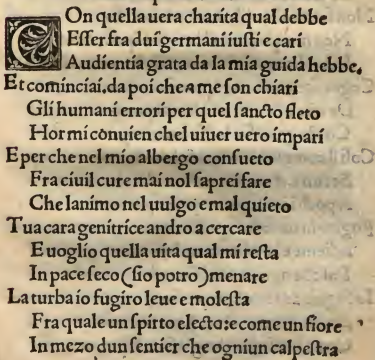 COn quella uera charita qual debbe
Eſſer fra dui germani iuſti e cari
Audientia grata da la mia guida hebbe,
Et cominciai.da poi che a me ſon chiari
Gli humani errori per quel ſancto fleto
Hor mi cōuien chel uiuer uero impari
E per che nel mio albergo conſueto
Fra ciuil cure mai nol ſaprei fare
Che lanimo nel uulgo e mal quieto
Tua cara genitrice andro a cercare
E uoglio quella uita qual mi reſta
In pace ſeco (ſio potro) menare
La turba io fugiro leue e moleſta
Fra quale un ſpirto electo: e come un fiore
In mezo dun ſentier che ogniun calpeſtra